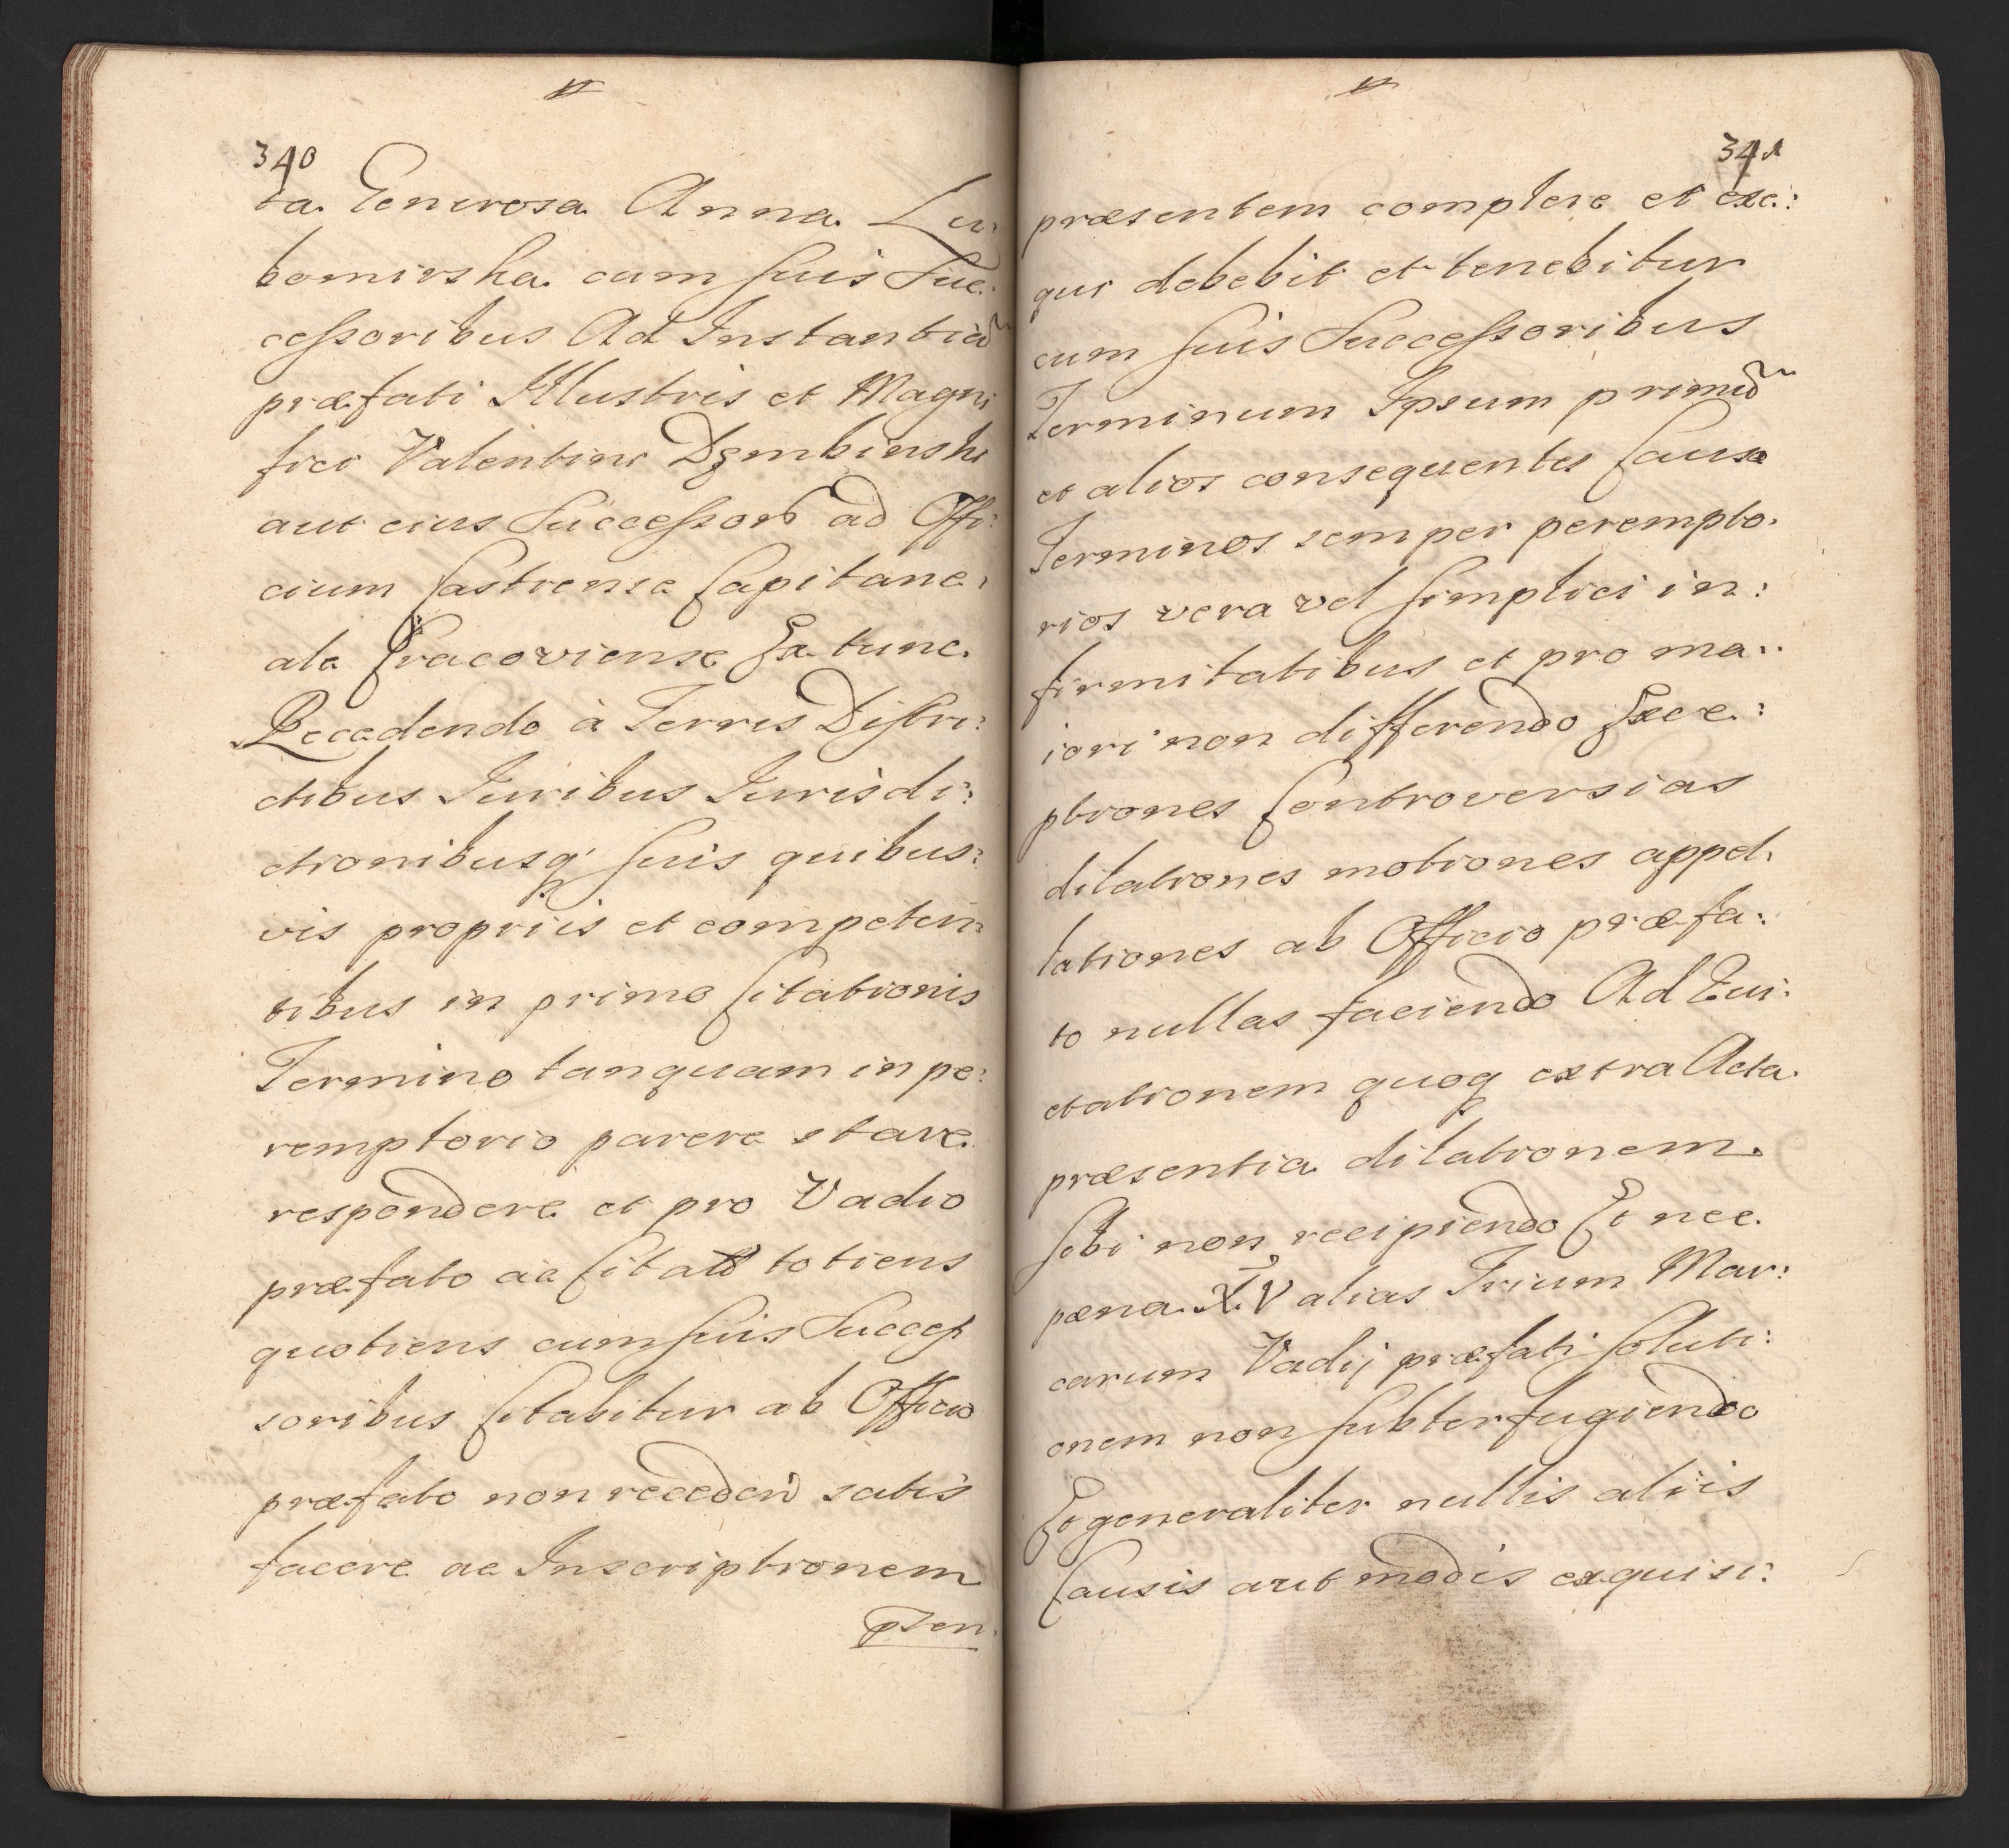 340
ta Generosa Anna Lu:
bomirska cum suis Suc:
cessoribus Ad Instantiã
præfati Illustris et Magni
fici Valentini Dęmbinski
aut eius Successorũ ad Offi:
cium Castrense Capitane:
ale Cracoviense Ex tunc
Recedendo à Terris Distri:
ctibus Iuribus Iurisdi:
ctionibusq suis quibus:
vis propriis et competen:
tibus in primo Citationis
Termino tanquam in pe:
remptorio parere stare
respondere et pro Vadio
præfato ac Citata totiens
quotiens cum suis Succes
soribus Citabitur ab Officio
præfato non recedendo satis
facere ac Inscriptionem
præsen:
341
præsentem complere et exe:
qui debebit et tenebitur
cum suis Successoribus
Terminum Ipsum primũ
et alios consequentes Causæ
Terminos semper perempto:
rios vera vel simplici in:
firmitatibus et pro ma:
iori non differendo Exce:
ptiones Controversias
dilationes motiones appel:
lationes ab Officio præfa:
to nullas faciendo Ad Eui:
ctationem quoq extra Acta
præsentia dilationem
sibi non recipiendo Et nec
pæna X.V alias Trium Mar:
carum Vadij præfati soluti:
onem non subterfugiendo
Et generaliter nullis aliis
Causis aut modis exquisi: